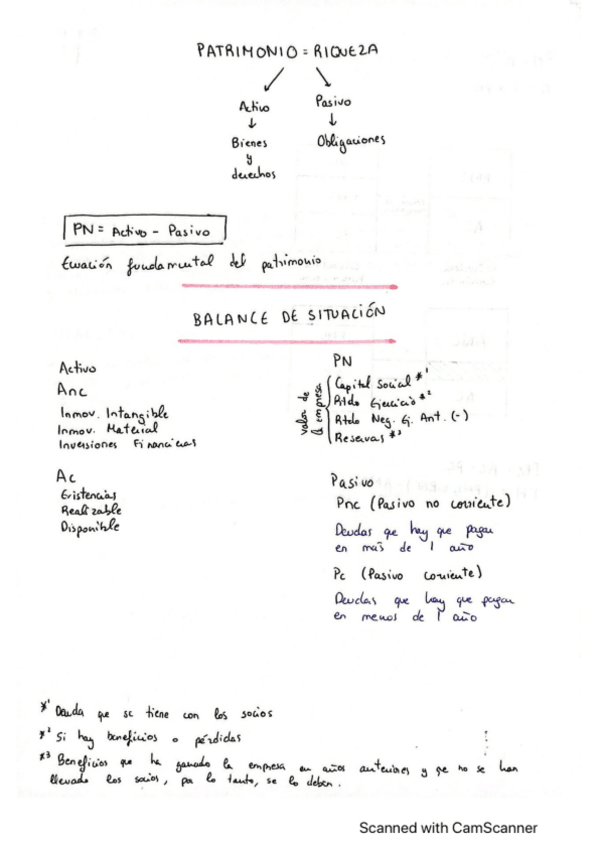 PATRIMONIO = RIQUEZA
Activo
Pasivo
Bienes
y
derechos
Obligaciones
PN = Activo - Pasivo
Ecuación fundamental del patrimonio
BALANCE DE SITUACIÓN
Activo
Anc
Inmov. Intangible
Inmov. Material
Inversiones Financieras
Ac
Existencias
Realizable
Disponible
PN
valor de
la empresa
Capital Social *1
Rtdo Ejercicio *2
Rtdo Neg. Ej. Ant. (-)
Reservas *3
Pasivo
Pnc (Pasivo no corriente)
Deudas que hay que pagar
en más de 1 año
Pc (Pasivo corriente)
Deudas que hay que pagar
en menos de 1 año
*1 Deuda que se tiene con los socios
*2 Si hay beneficios o pérdidas
*3 Beneficios que ha ganado la empresa en años anteriores y que no se han
llevado los socios, por lo tanto, se lo deben.
Scanned with CamScanner